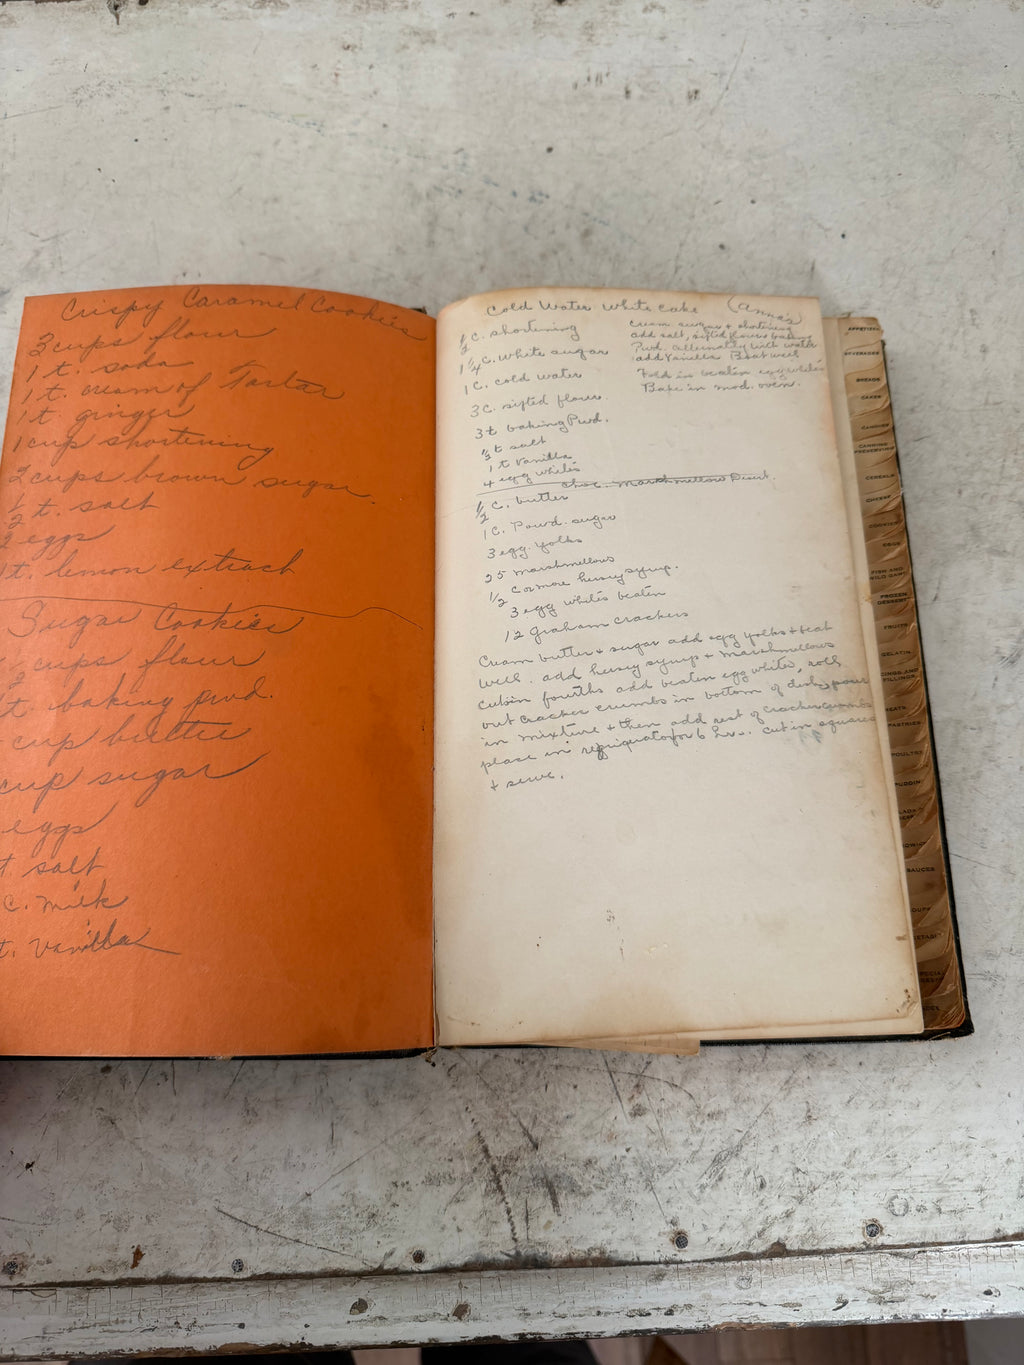 Crispy Caramel Cookies
3 cups flour
1 t. soda
1 t. cream of Tartar
1 t. ginger
1 cup shortening
2 cups brown sugar.
1/2 t. salt
2 eggs
1 t. lemon extract
Sugar Cookies
1/2 cups flour
t. baking pwd.
cup butter
cup sugar
eggs
t. salt
c. milk
t. vanilla
Cold Water white cake (Anna's
1/2 c. shortening
1 1/4 c. white sugar
1 c. cold water
3 c. sifted flour
3 t baking Pwd.
1/2 t salt
1 t Vanilla
4 egg whites
Cream sugar + shortening
add salt, sifted flour + baking
Pwd. alternately with water
add Vanilla Beat well
Fold in beaten egg whites
Bake in mod. oven.
Choc. Marshmellow Desert.
1/2 c. butter
1 c. Powd. sugar
3 egg yolks
25 marshmellows
1/2 c or more hersey syrup.
3 egg whites beaten
12 Graham crackers
Cream butter + sugar add egg yolks + beat
well. add hersey syrup + marshmellows
cut in fourths add beaten egg whites, roll
out cracker crumbs in bottom of dish, pour
in mixture + then add rest of cracker crumbs
place in refriguator for 6 hrs. Cut in squares
+ serve.
APPETIZERS
BEVERAGES
BREADS
CAKES
CANDIES
CANNING
PRESERVING
CEREALS
CHEESE
COOKIES
EGGS
FISH AND
WILD GAME
FROZEN
DESSERTS
FRUITS
GELATIN
ICINGS AND
FILLINGS
MEATS
PASTRIES
POULTRY
PUDDIN
SAUCES